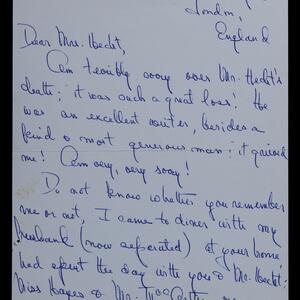 London,
England
Dear Mrs. Hecht,
Am terribly sorry over Mr. Hecht's
death; it was such a great loss! He
was an excellent writer, besides a
kind & most generous man; it grieved
me! Am very, very sorry!
Do not know whether you remember
me or not, I came to diner with my
husband (now seperated) at your home
had spent the day with you & Mr. Hecht;
Miss Hayes & Mr. McCarthy